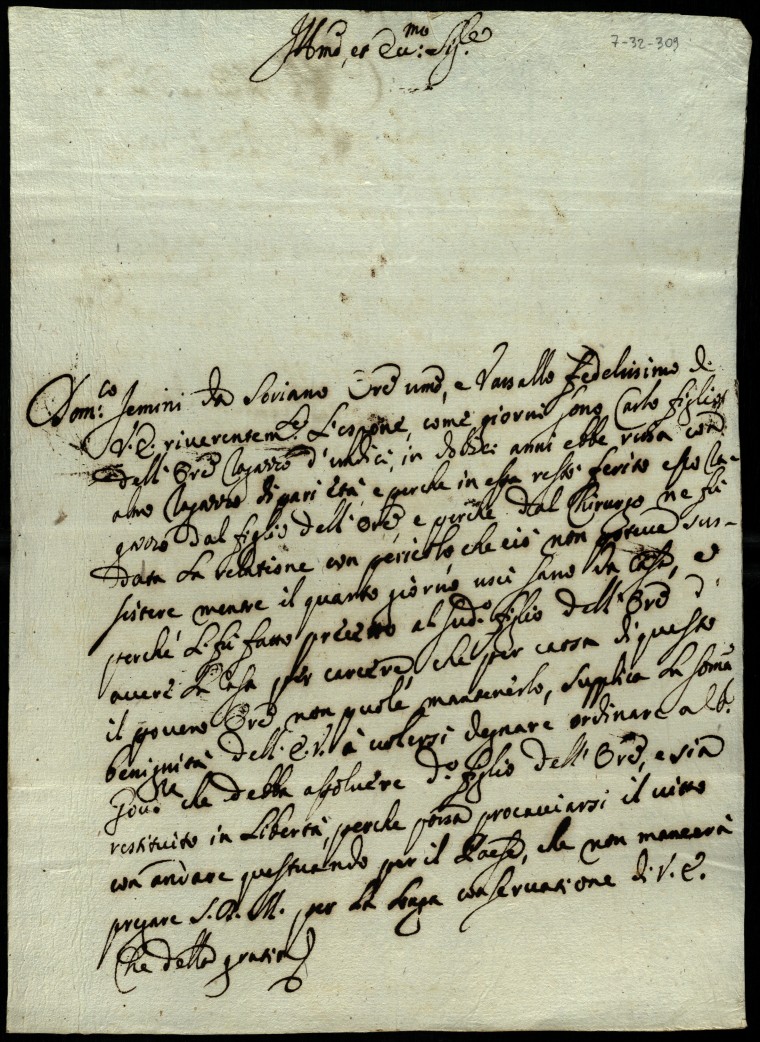 7-32-309
Ill.mo, et Ecc.mo Sig.re
Dom.co Jemini da Soriano Ore umo, e Vassallo fedelissimo di
V.E. riverentem.te L'espone, come giorni sono Carlo figlio
dell'Ore ragazzo d'undici, in dodici anni ebbe rissa con
altro ragazzo di pari età, e perche in essa restò ferito esso ra-
gazzo dal figlio dell'Ore, e perche dal Chirurgo ne fù
data la relatione con pericolo che ciò non poteva sus-
sistere mentre il quarto giorno uscì sano da Casa, e
perché Li fù fatto precetto al sud.o figlio dell'Ore d'
avere la Casa per carcere, che per causa di questo
il povero Ore non puole mantenerlo, supplica la somma
benignità dell'E.V. à volersi degnare ordinare al S.
Gov.re che debba assolvere d.o figlio dell'Ore, e sia
restituito in Libertà, perche possa procacciarsi il vitto
con andare questuando per il Paese, che non mancarà
pregare S.D.M. per la longa conservatione di V.E.
Che della gratia